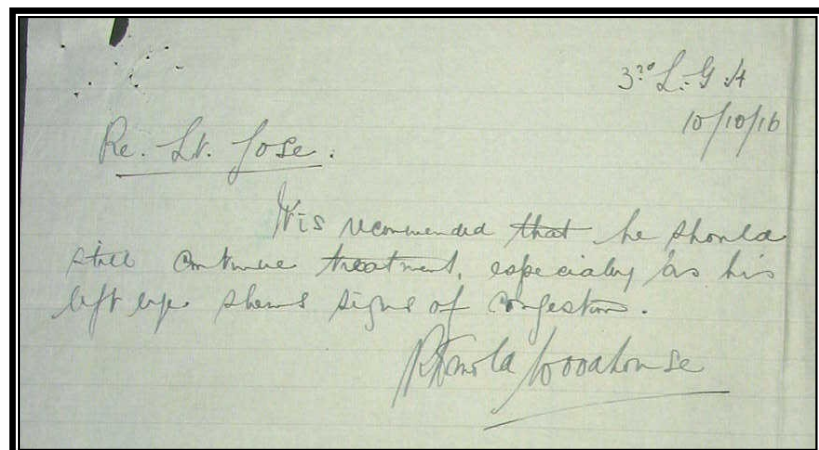 3rd L. G. H
10/10/16
Re. Lt. Jose.
It is recommended that he should
still continue treatment, especially as his
left eye shows signs of congestion.
Woodhouse